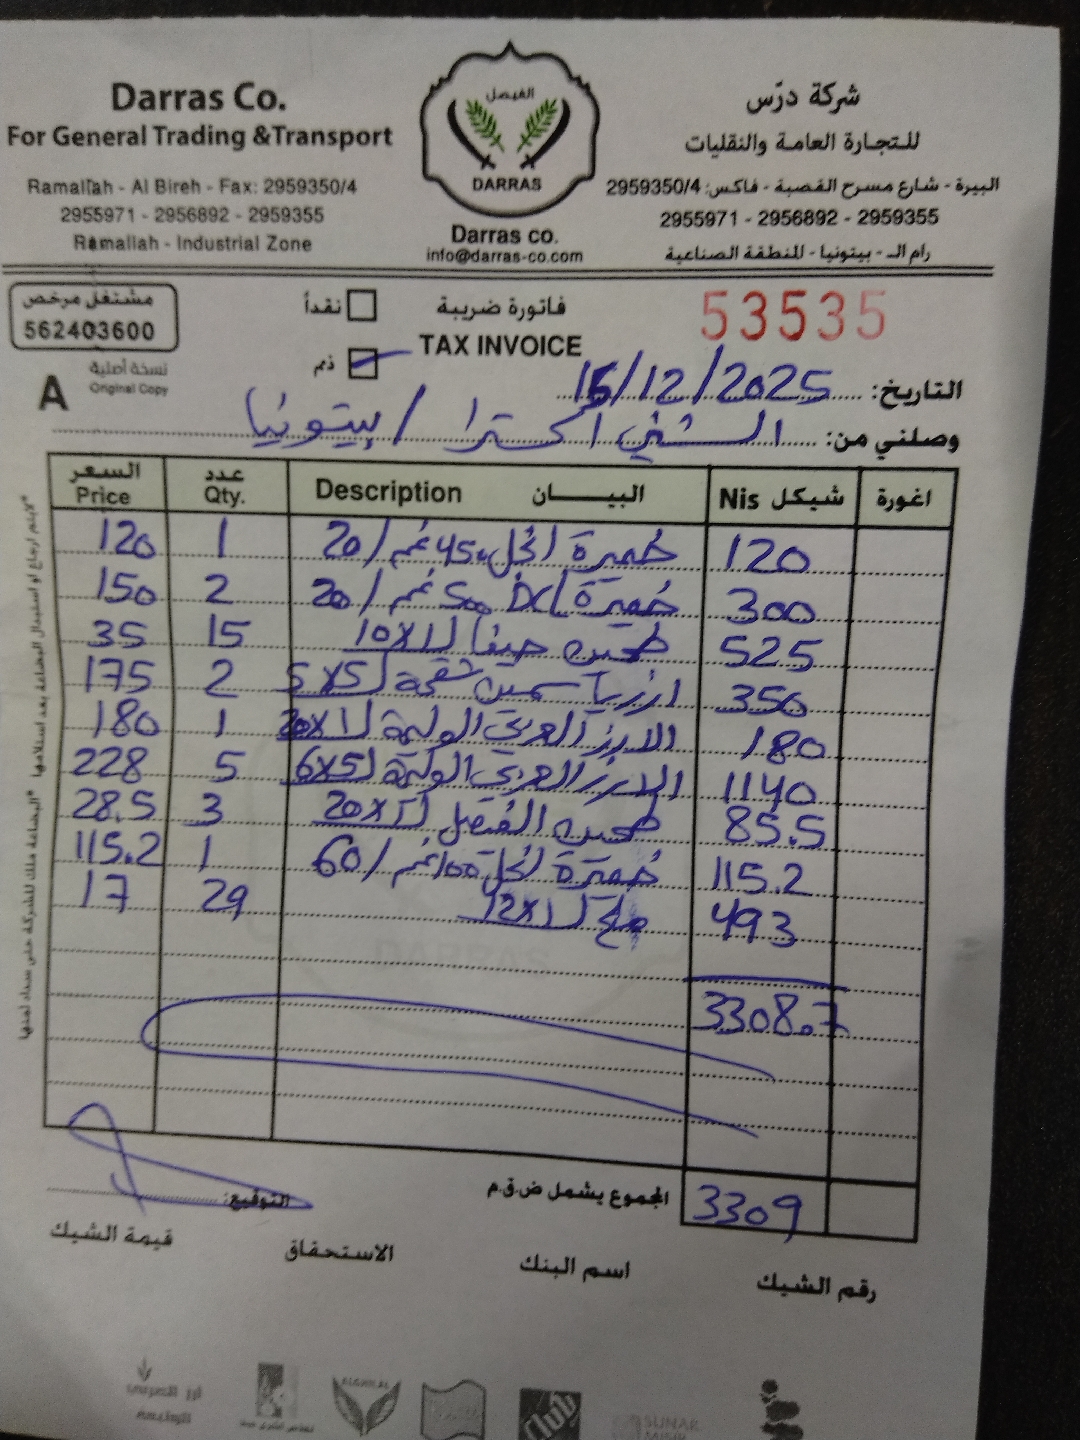 Darras Co.
For General Trading &Transport
Ramallah - Al Bireh - Fax: 2959350/4
2955971 - 2956892 - 2959355
Ramallah - Industrial Zone
الفيصل
DARRAS
Darras co.
info@darras-co.com
شركة درّس
للتجارة العامة والنقليات
البيرة - شارع مسرح القصبة - فاكس: 2959350/4
2955971 - 2956892 - 2959355
رام الـ - بيتونيا - المنطقة الصناعية
مشتغل مرخص
562403600
نسخة أصلية
Original Copy
A
نقداً
ذمم
فاتورة ضريبة
TAX INVOICE
53535
التاريخ: 15/12/2025
وصلني من: الشني اكسترا / بيتونيا
السعر Price عدد Qty. Description البيـــان Nis شيكل اغورة
120 1 خميرة النخل 450 غم / 20 120
150 2 خميرة 500 غم / 20 300
35 15 طحين حيفا 1ك 10x 525
175 2 ارز ياسمين 5ك 5x 350
180 1 الارز العربي الوليمة 1ك 20x 180
228 5 الارز العربي الوليمة 5ك 6x 1140
28.5 3 طحين الفيصل 1ك 20x 85.5
115.2 1 خميرة النخل 100 غم / 60 115.2
17 29 ملح 1ك 12x 493
3308.7
المجموع يشمل ض.ق.م 3309
التوقيع:
رقم الشيك اسم البنك الاستحقاق قيمة الشيك
*لا يتم ارجاع او استبدال البضاعة بعد استلامها *البضاعة ملك للشركة حتى سداد ثمنها
ارز العربي
الوليمة
ALGHILAL
Club
SUNAR
MISIR